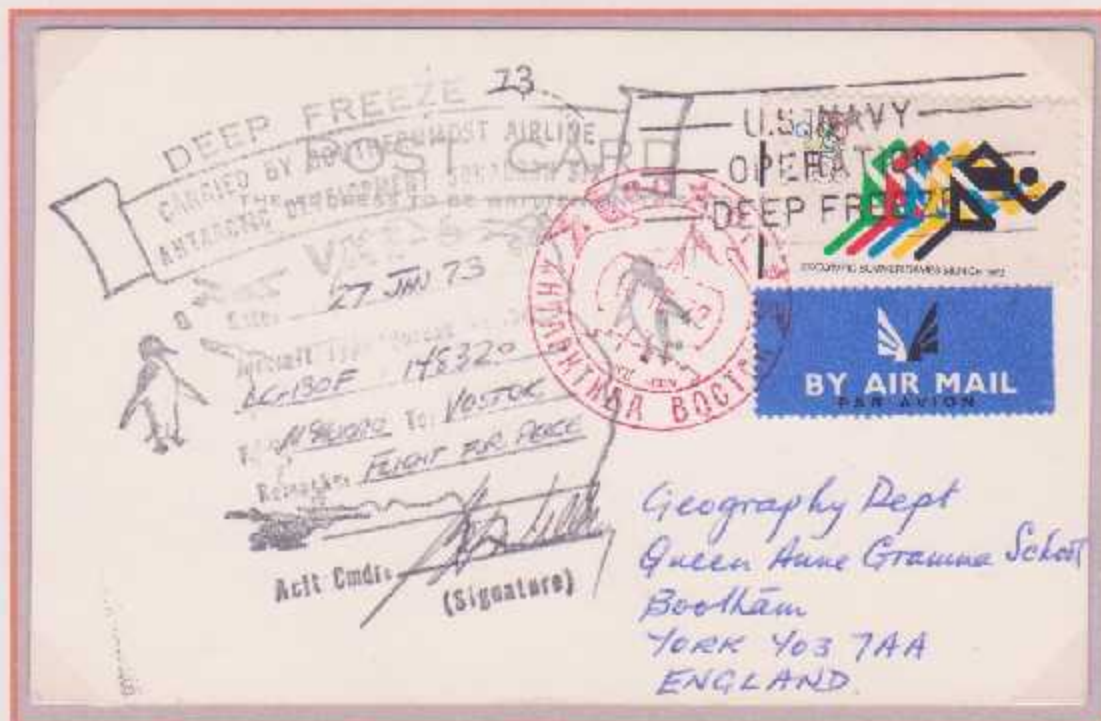 DEEP FREEZE 73
CARRIED BY SOUTHERNMOST AIRLINE
ANTARCTIC DEVELOPMENT SQUADRON SIX
POST CARD
THE ADDRESS TO BE WRITTEN
27 JAN 73
Aircraft Type
LC-130F 148320
McMURDO To: VOSTOK
Remarks: FLIGHT FOR PEACE
Acft Cmdr:
(Signature)
U.S. NAVY
OPERATION
DEEP FREEZE
XX OLYMPIC SUMMER GAMES MUNICH 1972
АНТАРКТИДА ВОСТОК
BY AIR MAIL
PAR AVION
Geography Dept
Queen Anne Gramma School
Bootham
YORK YO3 7AA
ENGLAND.